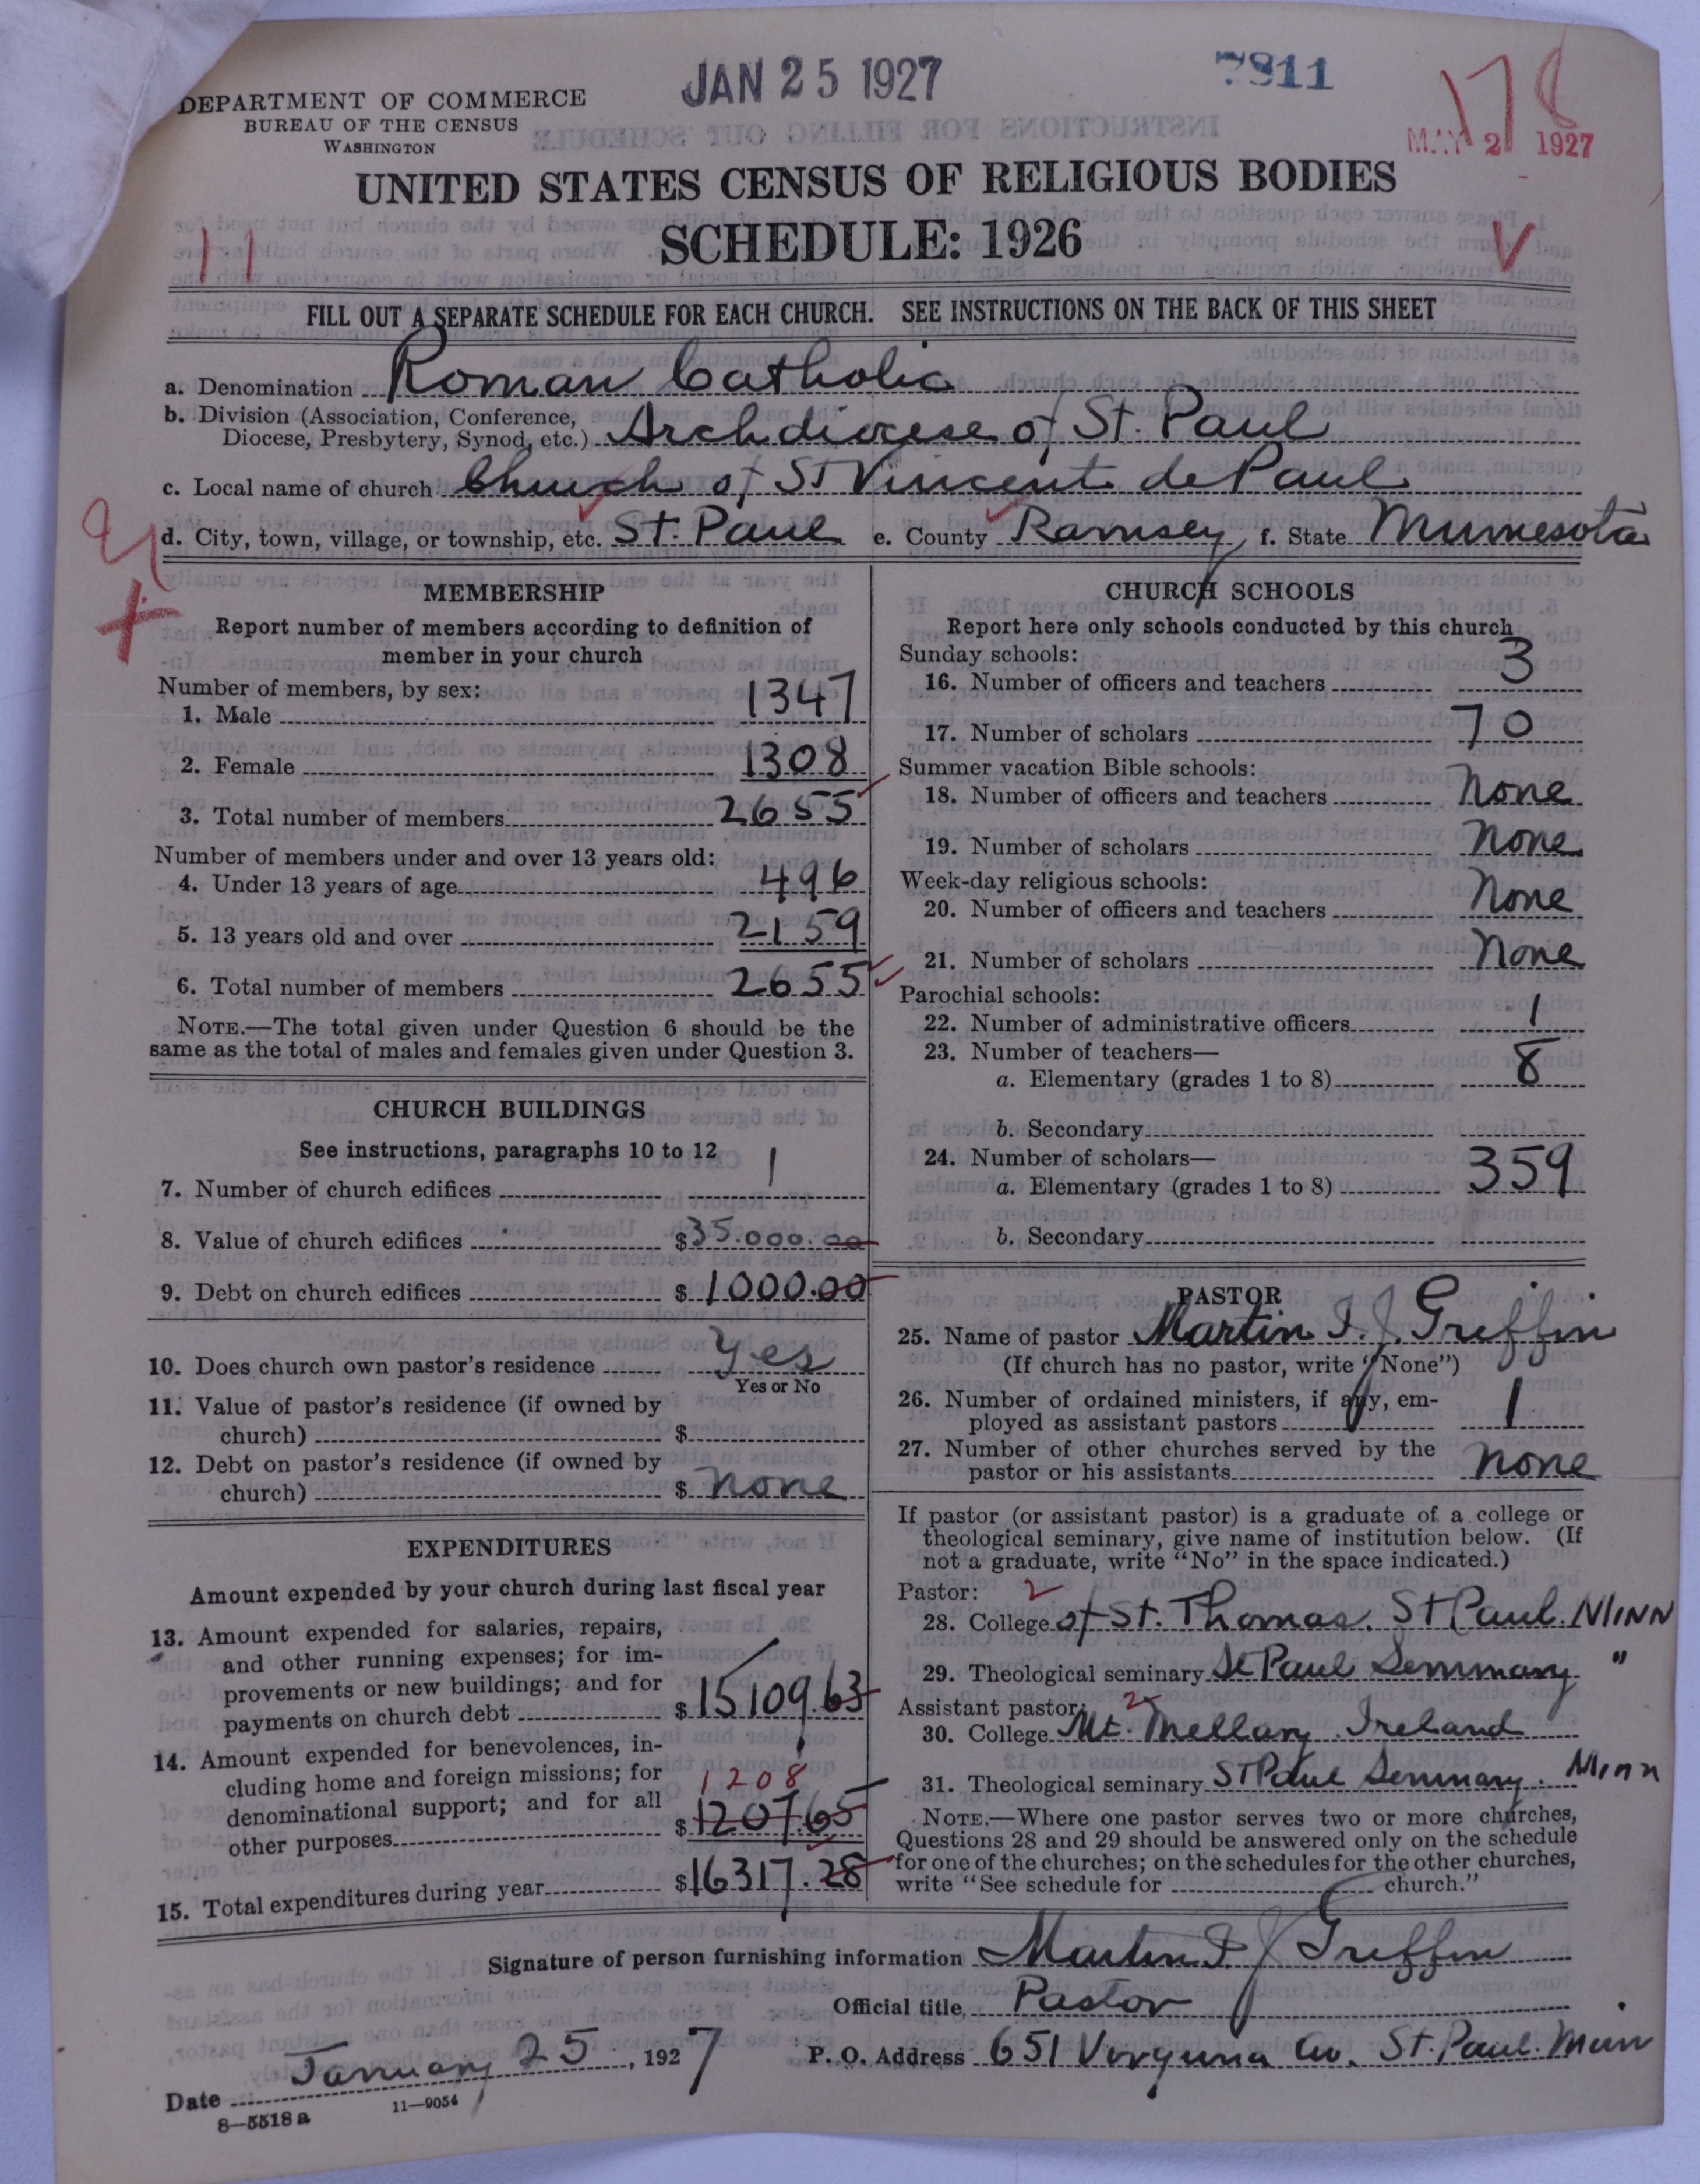 JAN 25 1927
7811
178
DEPARTMENT OF COMMERCE
BUREAU OF THE CENSUS
WASHINGTON
MAY 2 1927
UNITED STATES CENSUS OF RELIGIOUS BODIES
SCHEDULE: 1926
11
V
FILL OUT A SEPARATE SCHEDULE FOR EACH CHURCH. SEE INSTRUCTIONS ON THE BACK OF THIS SHEET
a. Denomination Roman Catholic
b. Division (Association, Conference,
Diocese, Presbytery, Synod, etc.) Archdiocese of St. Paul
c. Local name of church Church of St Vincent de Paul
d. City, town, village, or township, etc. St. Paul e. County Ramsey f. State Minnesota
MEMBERSHIP
Report number of members according to definition of
member in your church
Number of members, by sex:
1. Male 1347
2. Female 1308
3. Total number of members 2655
Number of members under and over 13 years old:
4. Under 13 years of age 496
5. 13 years old and over 2159
6. Total number of members 2655
NOTE.—The total given under Question 6 should be the
same as the total of males and females given under Question 3.
CHURCH BUILDINGS
See instructions, paragraphs 10 to 12
7. Number of church edifices 1
8. Value of church edifices $35.000.00
9. Debt on church edifices $1000.00
10. Does church own pastor's residence Yes
Yes or No
11. Value of pastor's residence (if owned by
church) $
12. Debt on pastor's residence (if owned by
church) $ none
EXPENDITURES
Amount expended by your church during last fiscal year
13. Amount expended for salaries, repairs,
and other running expenses; for im-
provements or new buildings; and for
payments on church debt $15109.63
14. Amount expended for benevolences, in-
cluding home and foreign missions; for
1208
denominational support; and for all
other purposes $1207.65
15. Total expenditures during year $16317.28
CHURCH SCHOOLS
Report here only schools conducted by this church
Sunday schools:
16. Number of officers and teachers 3
17. Number of scholars 70
Summer vacation Bible schools:
18. Number of officers and teachers None
19. Number of scholars None
Week-day religious schools:
20. Number of officers and teachers None
21. Number of scholars None
Parochial schools:
22. Number of administrative officers 1
23. Number of teachers—
a. Elementary (grades 1 to 8) 8
b. Secondary
24. Number of scholars—
a. Elementary (grades 1 to 8) 359
b. Secondary
PASTOR
25. Name of pastor Martin I. J. Griffin
(If church has no pastor, write "None")
26. Number of ordained ministers, if any, em-
ployed as assistant pastors 1
27. Number of other churches served by the
pastor or his assistants none
If pastor (or assistant pastor) is a graduate of a college or
theological seminary, give name of institution below. (If
not a graduate, write "No" in the space indicated.)
Pastor: 2
28. College of St. Thomas. St Paul. MINN
29. Theological seminary St Paul Seminary "
Assistant pastor: 2
30. College Mt. Mellary Ireland
31. Theological seminary St Paul Seminary. Minn
NOTE.—Where one pastor serves two or more churches,
Questions 28 and 29 should be answered only on the schedule
for one of the churches; on the schedules for the other churches,
write "See schedule for church."
Signature of person furnishing information Martin I J Griffin
Official title Pastor
Date January 25, 1927 P. O. Address 651 Virginia Av. St. Paul. Minn
8—5518 a 11—9054